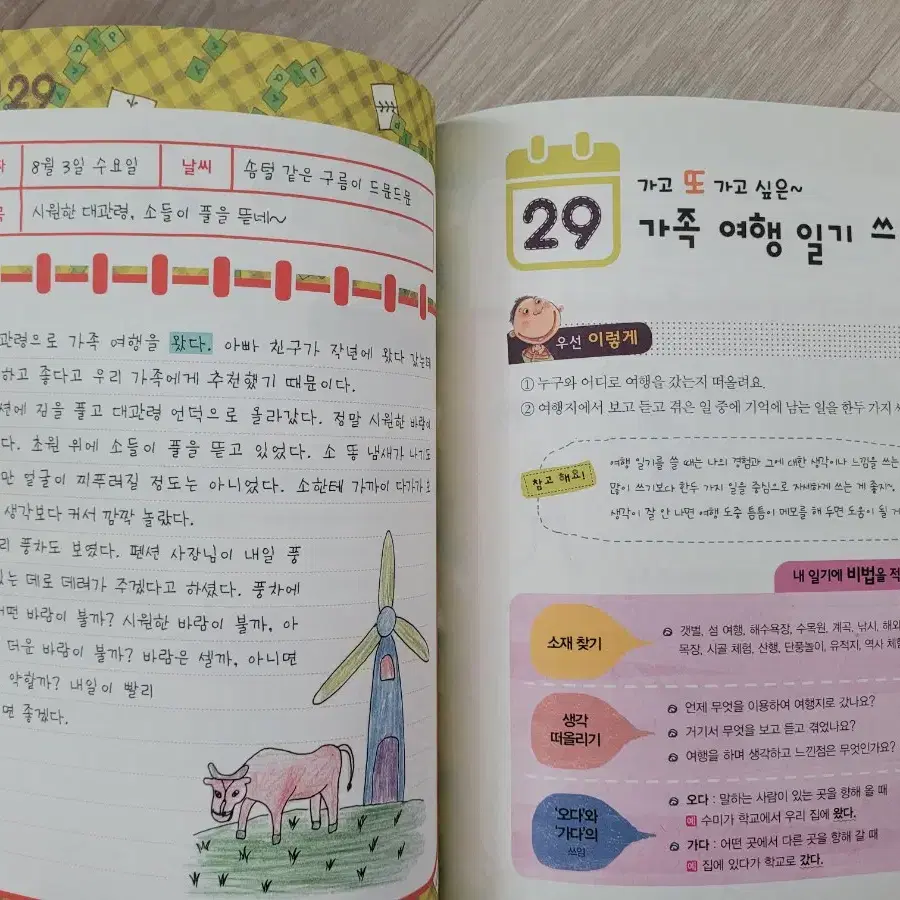 29
8월 3일 수요일 날씨 솜털 같은 구름이 드문드문
시원한 대관령, 소들이 풀을 뜯네~
관령으로 가족 여행을 왔다. 아빠 친구가 작년에 왔다 갔는데
하고 좋다고 우리 가족에게 추천했기 때문이다.
션에 짐을 풀고 대관령 언덕으로 올라갔다. 정말 시원한 바람이
다. 초원 위에 소들이 풀을 뜯고 있었다. 소 똥 냄새가 나기도
만 얼굴이 찌푸려질 정도는 아니었다. 소한테 가까이 다가가
생각보다 커서 깜짝 놀랐다.
리 풍차도 보였다. 펜션 사장님이 내일 풍
있는 데로 데려가 주겠다고 하셨다. 풍차에
어떤 바람이 불까? 시원한 바람이 불까, 아
더운 바람이 불까? 바람은 셀까, 아니면
약할까? 내일이 빨리
면 좋겠다.
29
가고 또 가고 싶은~
가족 여행 일기 쓰
우선 이렇게
① 누구와 어디로 여행을 갔는지 떠올려요.
② 여행지에서 보고 듣고 겪은 일 중에 기억에 남는 일을 한두 가지
참고 해요!
여행 일기를 쓸 때는 나의 경험과 그에 대한 생각이나 느낌을 쓰는
많이 쓰기보다 한두 가지 일을 중심으로 자세하게 쓰는 게 좋지.
생각이 잘 안 나면 여행 도중 틈틈이 메모를 해 두면 도움이 될
내 일기에 비법을 적
소재 찾기
갯벌, 섬 여행, 해수욕장, 수목원, 계곡, 낚시, 해외
목장, 시골 체험, 산행, 단풍놀이, 유적지, 역사 체험
생각
떠올리기
언제 무엇을 이용하여 여행지로 갔나요?
거기서 무엇을 보고 듣고 겪었나요?
여행을 하며 생각하고 느낀점은 무엇인가요?
'오다'와
'가다'의
쓰임
오다 : 말하는 사람이 있는 곳을 향해 올 때
예 수미가 학교에서 우리 집에 왔다.
가다 : 어떤 곳에서 다른 곳을 향해 갈 때
예 집에 있다가 학교로 갔다.